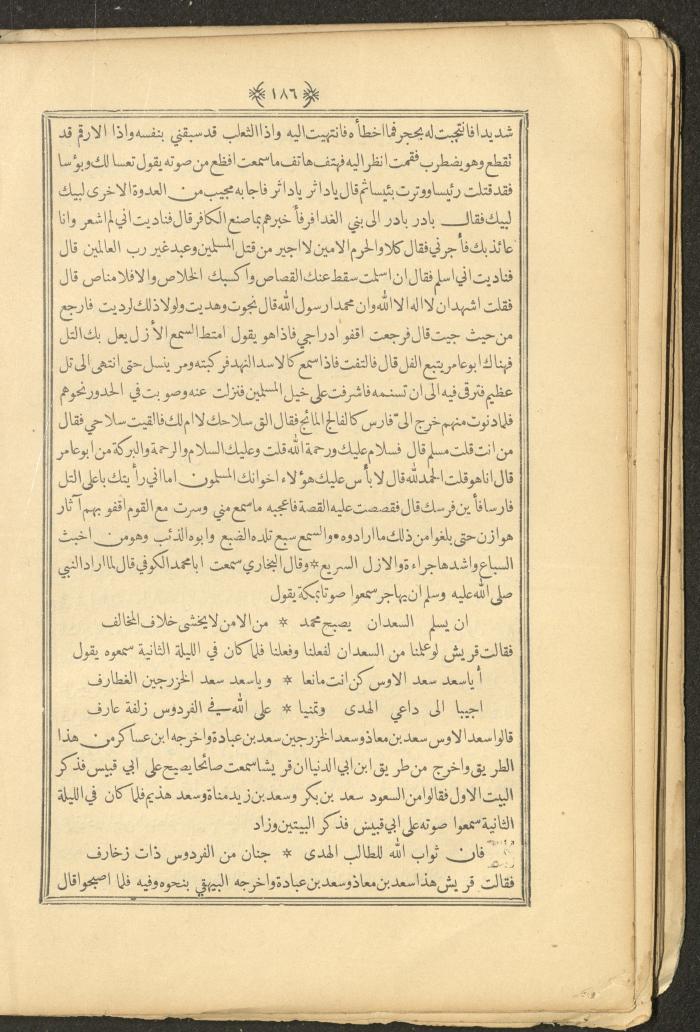 ١٨٦
شديدا فانتجبت له بحجر فما اخطأه فانتهيت اليه واذا الثعلب قد سبقني بنفسه واذا الارقم قد
تقطع وهو يضطرب فقمت انظر اليه فهتف هاتف ما سمعت افظع من صوته يقول تعسا لك وبؤسا
فقد قتلت رئيسا ووترت بئيسا ثم قال يا داثر يا داثر فاجابه مجيب من العدوة الاخرى لبيك
لبيك فقال بادر بادر الى بني الغدافر فأخبرهم بما صنع الكافر قال فناديت اني لم اشعر وانا
عائذ بك فأجرني فقال كلا والحرم الامين لا اجير من قتل المسلمين وعبد غير رب العالمين قال
فناديت اني اسلم فقال ان اسلمت سقط عنك القصاص وأكسبك الخلاص والا فلا مناص قال
فقلت اشهد ان لا اله الا الله وان محمد ارسول الله قال نجوت وهديت ولولا ذلك لرديت فارجع
من حيث جيت قال فرجعت اقفو ادراجي فاذا هو يقول امتط السمع الأزل يعل بك التل
فهناك ابو عامر يتبع الفل قال فالتفت فاذا سمع كالاسد النهد فركبته ومر ينسل حتى انتهى الى تل
عظيم فترقى فيه الى ان تسنمه فاشرفت على خيل المسلمين فنزلت عنه وصوبت في الحدور نحوهم
فلما دنوت منهم خرج الى فارس كالفالج المائج فقال الق سلاحك لا ام لك فالقيت سلاحي فقال
من انت قلت مسلم قال فسلام عليك ورحمة الله قلت وعليك السلام والرحمة والبركة من ابو عامر
قال انا هو قلت الحمد لله قال لا بأس عليك هؤلاء اخوانك المسلمون اما اني رأيتك باعلى التل
فارسا فأين فرسك قال فقصصت عليه القصة فاعجبه ما سمع مني وسرت مع القوم اقفو بهم آثار
هوازن حتى بلغوا من ذلك ما ارادوه • والسمع سبع تلده الضبع وابوه الذئب وهو من اخبث
السباع واشدها جراءة والازل السريع * وقال البخاري سمعت ابا محمد الكوفي قال لما اراد النبي
صلى الله عليه وسلم ان يهاجر سمعوا صوتا بمكة يقول
ان يسلم السعدان يصبح محمد * من الامن لا يخشى خلاف المخالف
فقالت قريش لو علمنا من السعدان لفعلنا وفعلنا فلما كان في الليلة الثانية سمعوه يقول
أيا سعد سعد الاوس كن انت مانعا * ويا سعد سعد الخزرجين الغطارف
اجيبا الى داعي الهدى وتمنيا * على الله في الفردوس زلفة عارف
قالوا سعد الاوس سعد بن معاذ وسعد الخزرجين سعد بن عبادة واخرجه ابن عساكر من هذا
الطريق واخرج من طريق ابن ابي الدنيا ان قريشا سمعت صائحا يصيح على ابي قبيس فذكر
البيت الاول فقالوا من السعود سعد بن بكر وسعد بن زيد مناة وسعد هذيم فلما كان في الليلة
الثانية سمعوا صوته على ابي قبيس فذكر البيتين وزاد
فان ثواب الله للطالب الهدى * جنان من الفردوس ذات زخارف
فقالت قريش هذا سعد بن معاذ وسعد بن عبادة واخرجه البيهقي بنحوه وفيه فلما اصبحوا قال